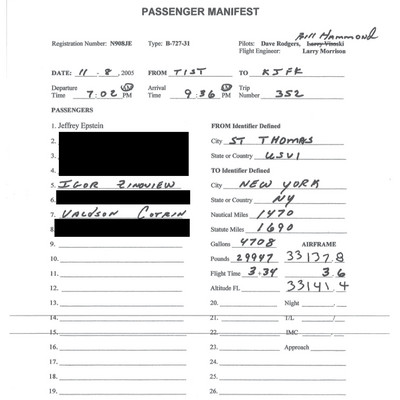 PASSENGER MANIFEST
Bill Hammond
Registration Number: N908JE Type: B-727-31 Pilots: Dave Rodgers, Larry Visoski
Flight Engineer: Larry Morrison
DATE: 11 - 8, 2005 FROM TIST TO KJFK
Departure Time 7:02 PM Arrival Time 9:36 PM Trip Number 352
PASSENGERS
1. Jeffrey Epstein FROM Identifier Defined
2. City ST THOMAS
3. State or Country USVI
4. TO Identifier Defined
5. IGOR ZINOVIEW City NEW YORK
6. State or Country NY
7. VALDSON COTRIN Nautical Miles 1470
8. Statute Miles 1690
9. Gallons 4708 AIRFRAME
10. Pounds 29947 33137.8
11. Flight Time 3.34 3.6
12. Altitude FL 33141.4
13. 20. Night
14. 21. T/L /
15. 22. IMC
16. 23. Approach
17. 24.
18. 25.
19. 26.